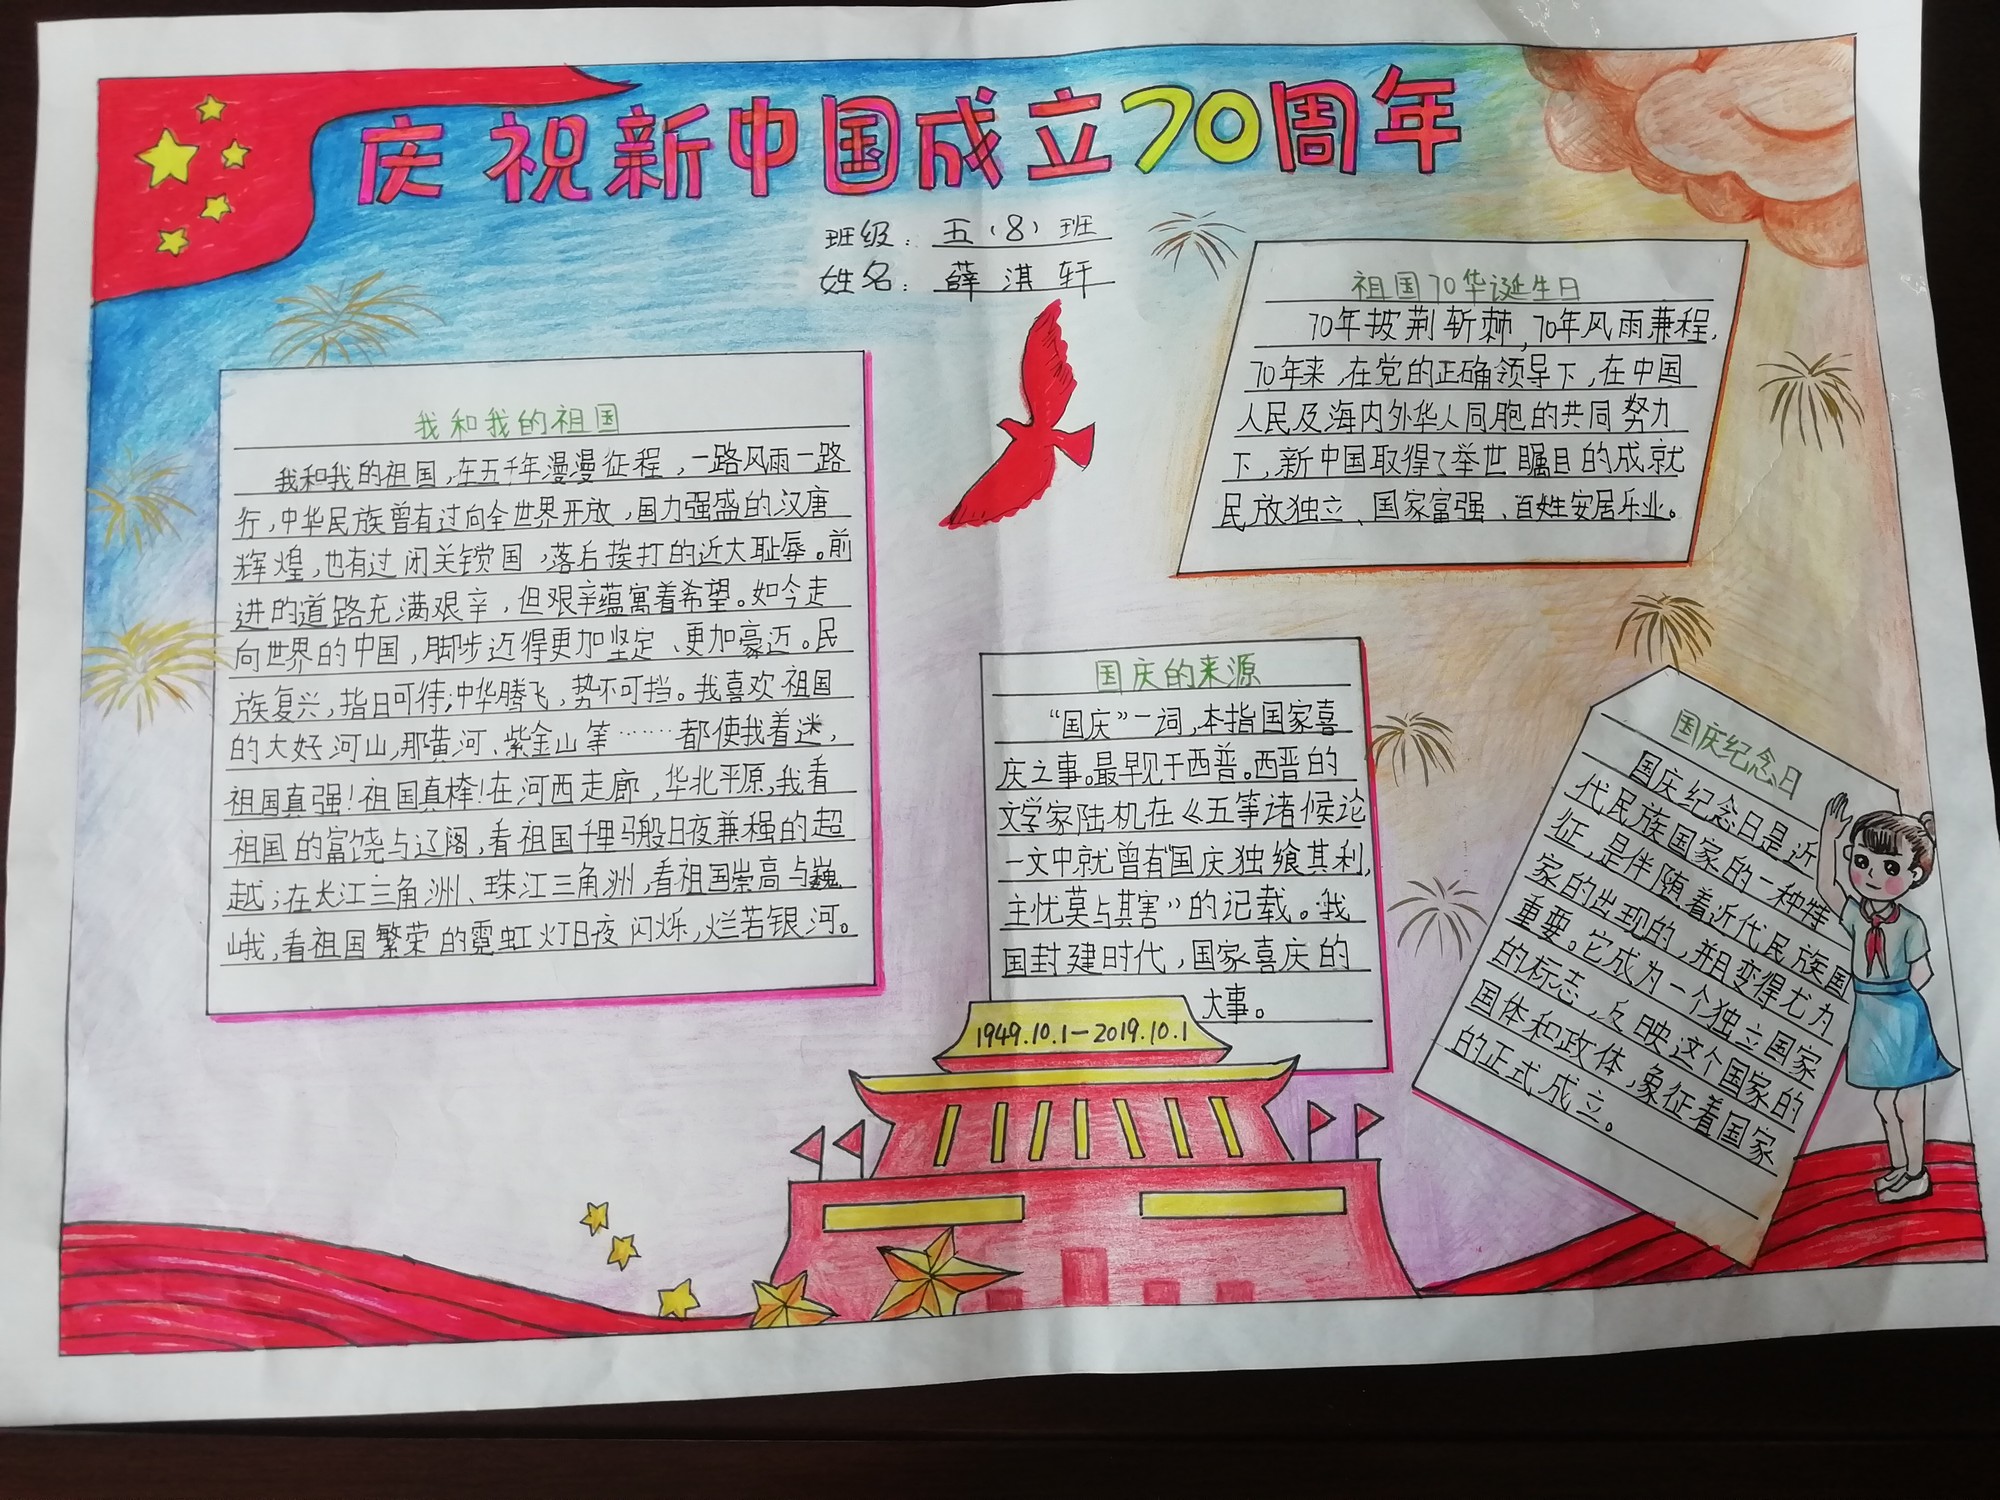 庆祝新中国成立70周年
班级：五（8）班
姓名：薛淇轩
我和我的祖国
我和我的祖国，在五千年漫漫征程，一路风雨一路
行，中华民族曾有过向全世界开放，国力强盛的汉唐
辉煌，也有过闭关锁国，落后挨打的近大耻辱。前
进的道路充满艰辛，但艰辛蕴寓着希望。如今走
向世界的中国，脚步迈得更加坚定、更加豪迈。民
族复兴，指日可待；中华腾飞，势不可挡。我喜欢祖国
的大好河山，那黄河、紫金山等……都使我着迷，
祖国真强！祖国真棒！在河西走廊，华北平原，我看
祖国的富饶与辽阔，看祖国千里马般日夜兼程的超
越；在长江三角洲、珠江三角洲，看祖国崇高与巍
峨，看祖国繁荣的霓虹灯日夜闪烁，烂若银河。
祖国70华诞生日
70年披荆斩棘，70年风雨兼程，
70年来，在党的正确领导下，在中国
人民及海内外华人同胞的共同努力
下，新中国取得了举世瞩目的成就
民放独立、国家富强、百姓安居乐业。
国庆的来源
“国庆”一词，本指国家喜
庆之事。最早见于西普。西晋的
文学家陆机在《五等诸候论
一文中就曾有“国庆独飨其利，
主忧莫与其害”的记载。我
国封建时代，国家喜庆的
大事。
1949.10.1—2019.10.1
国庆纪念日
国庆纪念日是近
代民族国家的一种特
征，是伴随着近代民族国
家的出现的，并且变得尤为
重要。它成为一个独立国家
的标志，反映这个国家的
国体和政体，象征着国家
的正式成立。